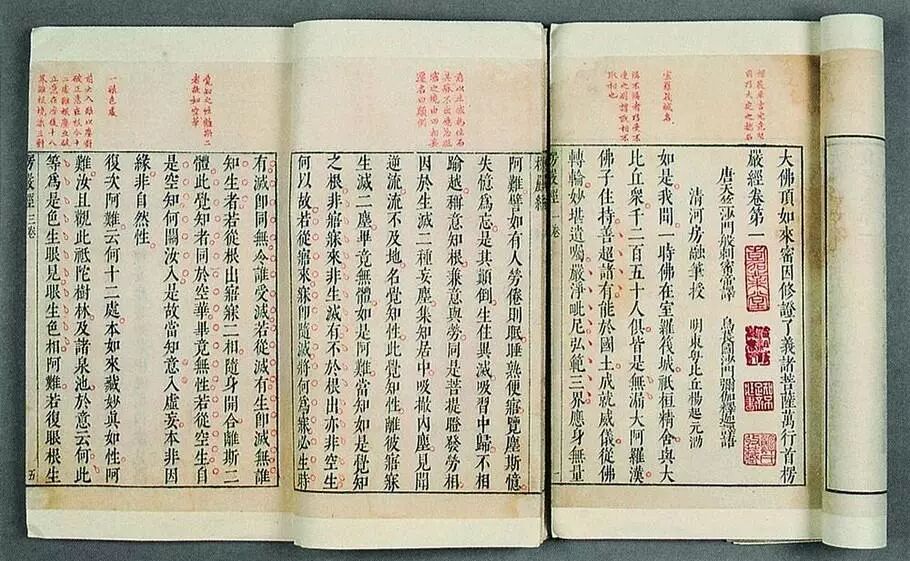 大佛頂如來密因修證了義諸菩薩萬行首楞
嚴經卷第一
唐天竺沙門般剌蜜諦譯 烏長國沙門彌伽釋迦譯語
清河房融筆授 明東粵比丘楊起元
如是我聞一時佛在室羅筏城祇桓精舍與大
比丘衆千二百五十人俱皆是無漏大阿羅漢
佛子住持善超諸有能於國土成就威儀從佛
轉輪妙堪遺囑嚴淨毗尼弘範三界應身無量
楞嚴經 一卷 一
阿難譬如有人勞倦則眠睡熟便寤覽塵斯憶
失憶為忘是其顛倒生住異滅吸習中歸不相
踰越稱意知根兼意與勞同是菩提瞪發勞相
因於生滅二種妄塵集知居中吸撮內塵見聞
逆流流不及地名覺知性此覺知性離彼寤寐
生滅二塵畢竟無體如是阿難當知如是覺知
之根非寤寐來非生滅有不於根出亦非空生
何以故若從寤來寐即隨滅將何為寐必生時
有滅即同無令誰受滅若從滅有生即滅無誰
知生者若從根出寤寐二相隨身開合離斯二
體此覺知者同於空華畢竟無性若從空生自
是空知何關汝入是故當知意入虛妄本非因
緣非自然性
復次阿難云何十二處本如來藏妙真如性阿
難汝且觀此祇陀樹林及諸泉池於意云何此
等為是色生眼見眼生色相阿難若復眼根生
楞嚴經 三卷 五